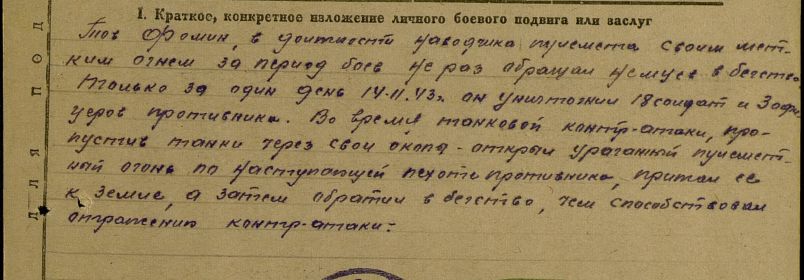 I. Краткое, конкретное изложение личного боевого подвига или заслуг
Тов Фомин, в должности наводчика пулемета своим мет-
ким огнем за период боев не раз обращал немцев в бегство.
Только за один день 14.11.43г. он уничтожил 18 солдат и 3 офи-
церов противника. Во время танковой контр-атаки, про-
пустив танки через свои окопы - открыл ураганный пулемет-
ный огонь по наступающей пехоте противника, прижал ее
к земле, а затем обратил в бегство, чем способствовал
отражению контр-атаки.
ДЛЯ ПОД